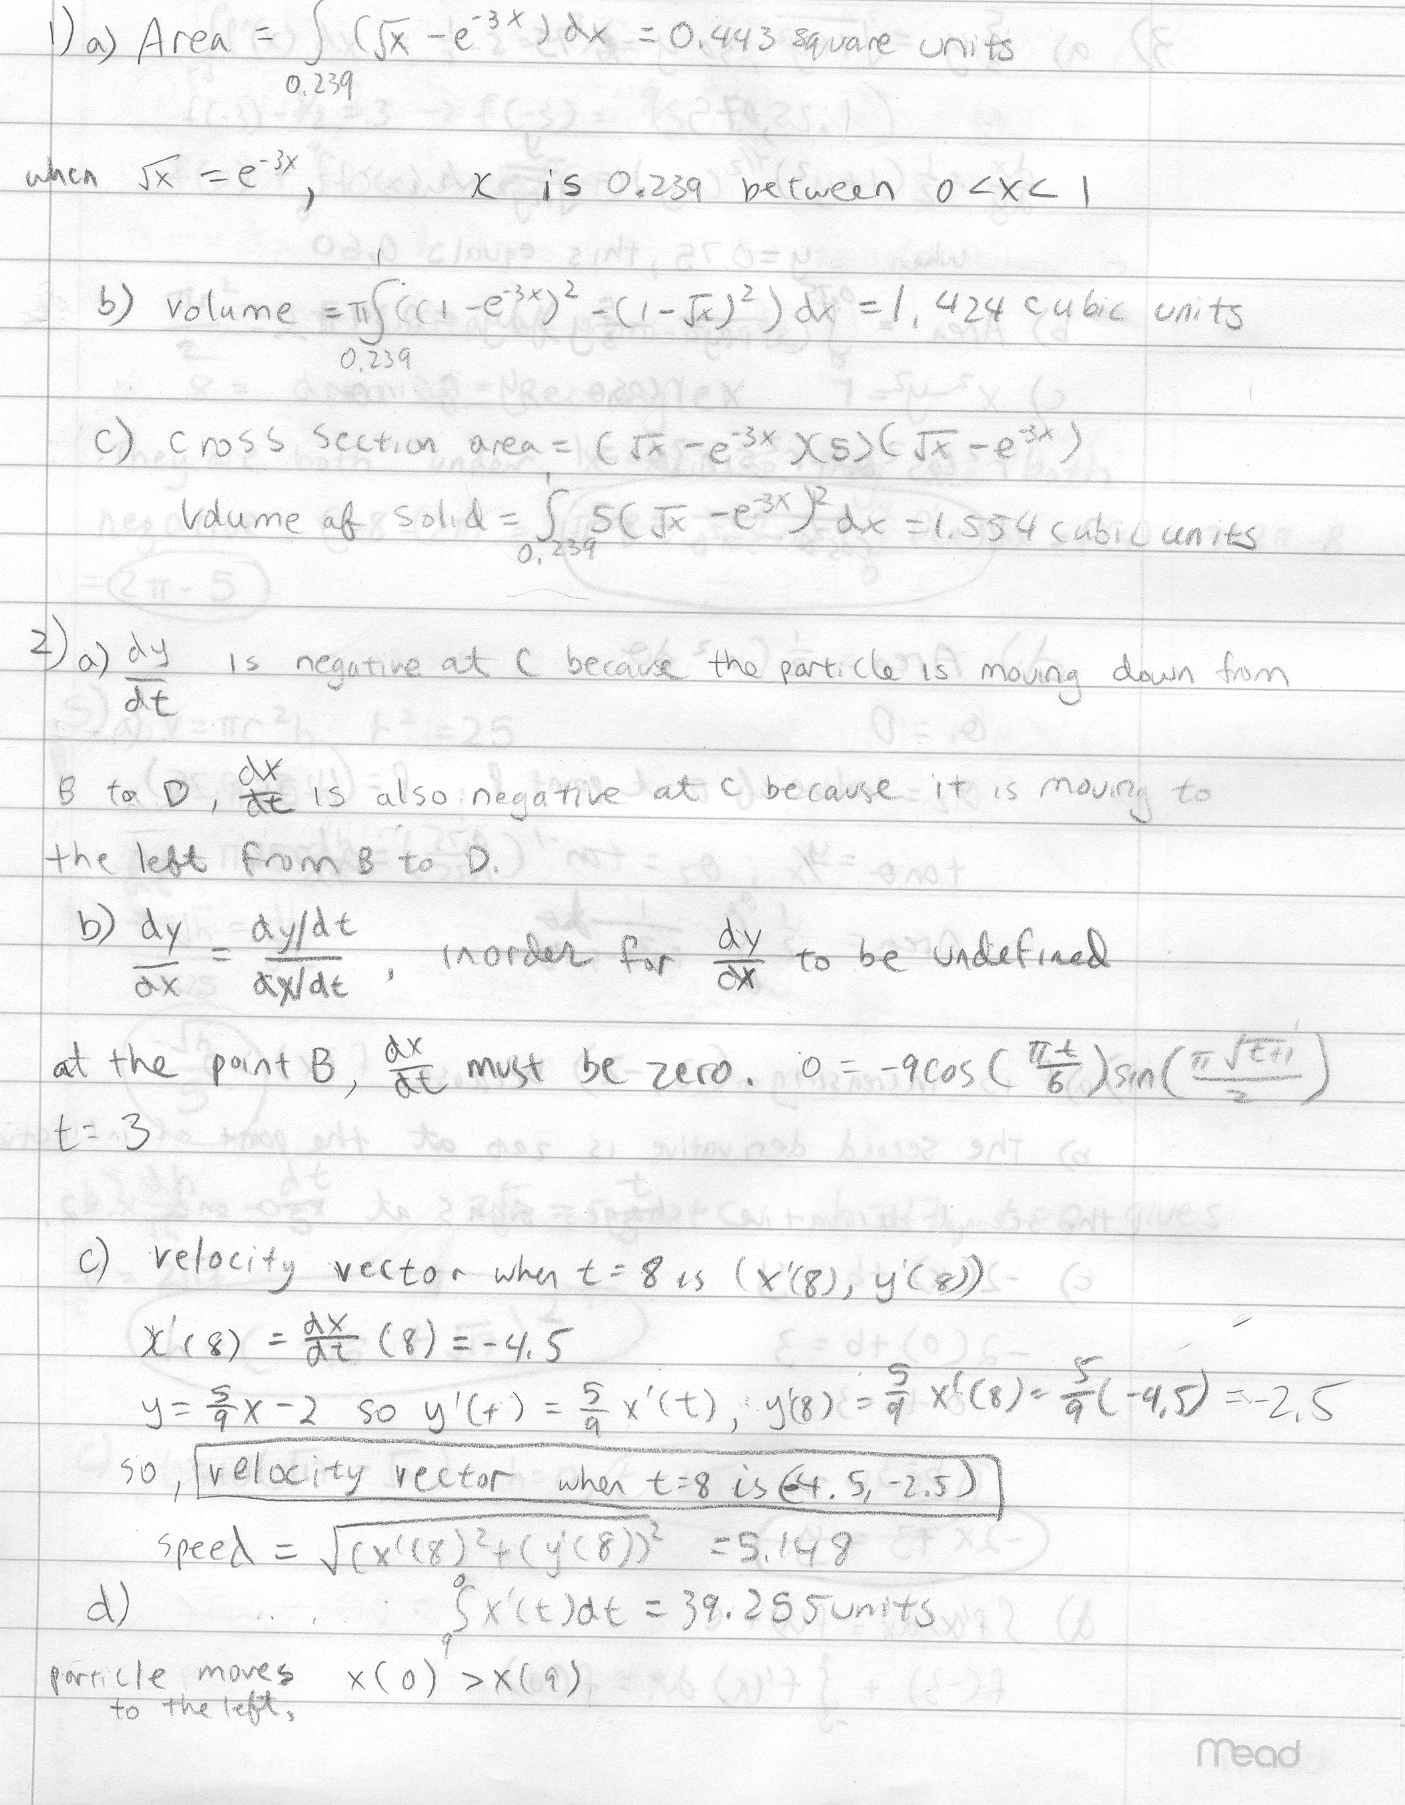 1) a) Area = ∫ (√x - e^-3x) dx = 0.443 square units
0.239
when √x = e^-3x, x is 0.239 between 0 < x < 1
1
b) volume = π∫ ((1 - e^-3x)^2 - (1 - √x)^2) dx = 1.424 cubic units
0.239
c) cross section area = (√x - e^-3x)(5)(√x - e^-3x)
1
Volume of solid = ∫ 5(√x - e^-3x)^2 dx = 1.554 cubic units
0.239
2) a) dy/dt is negative at C because the particle is moving down from
B to D, dx/dt is also negative at C because it is moving to
the left from B to D.
b) dy/dx = dy/dt / dx/dt, inorder for dy/dx to be undefined
at the point B, dx/dt must be zero. 0 = -9cos(πt/6) sin(π√t+1/2)
t = 3
c) velocity vector when t = 8 is (x'(8), y'(8))
x'(8) = dx/dt (8) = -4.5
y = 5/9 x - 2 so y'(t) = 5/9 x'(t), y'(8) = 5/9 x'(8) = 5/9(-4.5) = -2.5
so, velocity vector when t=8 is (-4.5, -2.5)
speed = √(x'(8)^2 + (y'(8))^2 = 5.148
d) ∫ x'(t) dt = 39.255 units
0
9
particle moves x(0) > x(9)
to the left.
Mead